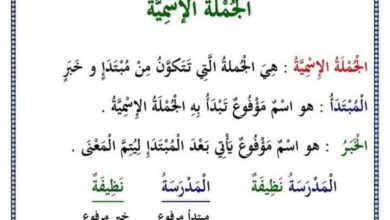 الْجُمْلَةُ الإِسْمِيَّةُ
الْجُمْلَةُ الإِسْمِيَّةُ : هِيَ الْجُملةُ الَّتِي تَتَكَوَّنُ مِنْ مُبْتَدَإٍ و خَبَرٍ
الْمُبْتَدَأُ : هو اسْمٌ مَرْفُوعٌ تَبْدَأُ بِهِ الْجُمْلَةُ الإِسْمِيَّةُ .
الْخَبَرُ : هو اسْمٌ مَرْفُوعٌ يَأْتِي بَعْدَ الْمُبْتَدَإِ لِيُتِمَّ الْمَعْنَى .
الْمَدْرَسَةُ نَظِيفَةٌ الْمَدْرَسَةُ نَظِيفَةٌ
مبتدأ مرفوع خبر مرفوع